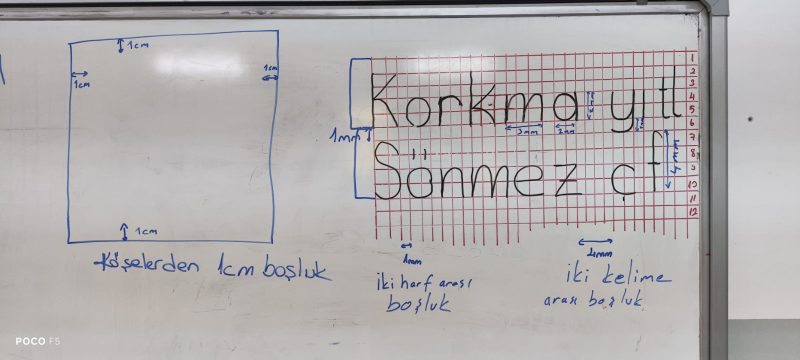 1cm
1cm
1cm
1cm
Köşelerden 1cm boşluk
Korkma yıtl
Sönmez çf
1mm
3mm
2mm
4mm
1
2
3
4
5
6
7
8
9
10
11
12
1mm
iki harf arası
boşluk
4mm
iki kelime
arası boşluk
POCO F5